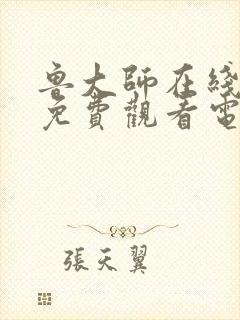 魯大師在綫
免費觀看電
張天翼